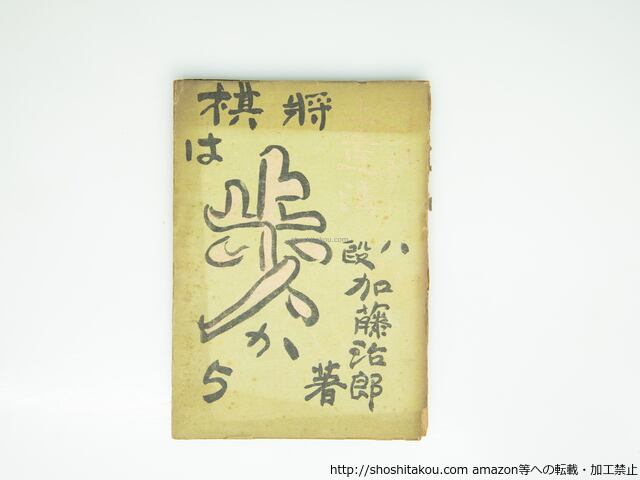 将棋
は
歩
から
八段
加藤治郎
著
shoshitakou.com
http://shoshitakou.com amazon等への転載・加工禁止